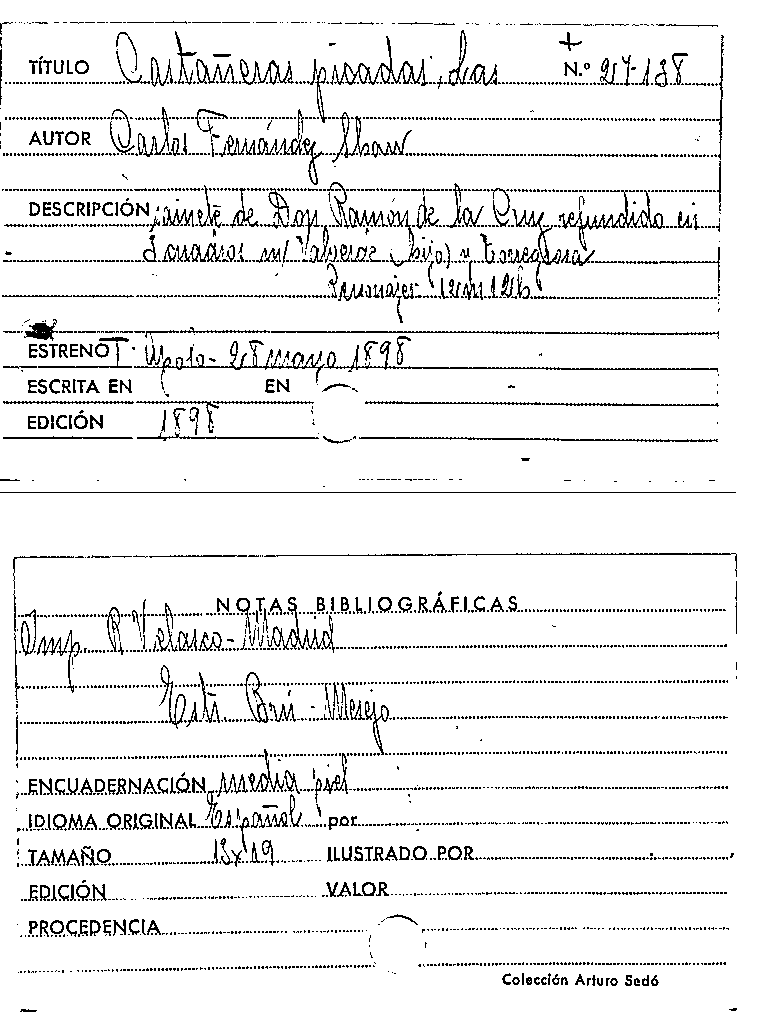 TÍTULO Castañeras picadas, Las N.º 217-138
AUTOR Carlos Fernández Shaw
DESCRIPCIÓN sainete de Don Ramón de la Cruz refundido en
3 cuadros m/ Valverde (hijo) y Torregrosa
Personajes 12m 12h
ESTRENO T. Apolo - 28 mayo 1898
ESCRITA EN EN
EDICIÓN 1898
NOTAS BIBLIOGRÁFICAS
Imp. R Velasco - Madrid
Estr. Brú - Mesejo
ENCUADERNACIÓN media piel
IDIOMA ORIGINAL Español por
TAMAÑO 13x19 ILUSTRADO POR
EDICIÓN VALOR
PROCEDENCIA
Colección Arturo Sedó